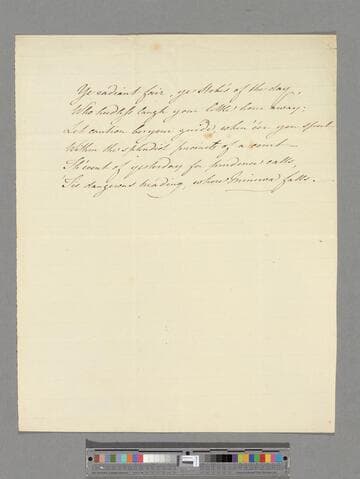 Ye radiant fair, ye Hebes of the day,
Who heedless laugh your little hour away;
Let caution be your guide, when'eer you sport
Within the splendid precincts of a court
Th'event of yesterday for prudence calls,
'Tis dangerous treading, where Minerva falls.